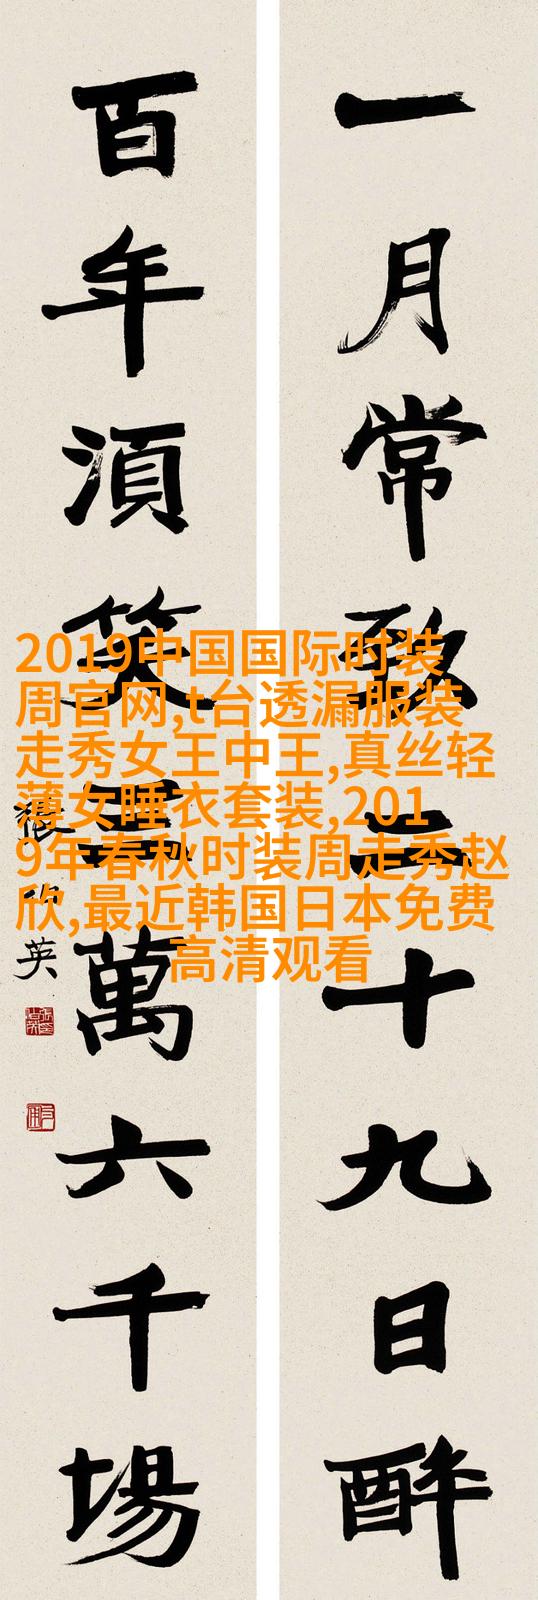 一月常二十九日醉
百年湏笑三萬六千場
張伯英
2019中国国际时装
周官网,t台透漏服装
走秀女王中王,真丝轻
薄女睡衣套装,201
9年春秋时装周走秀赵
欣,最近韩国日本免费
高清观看